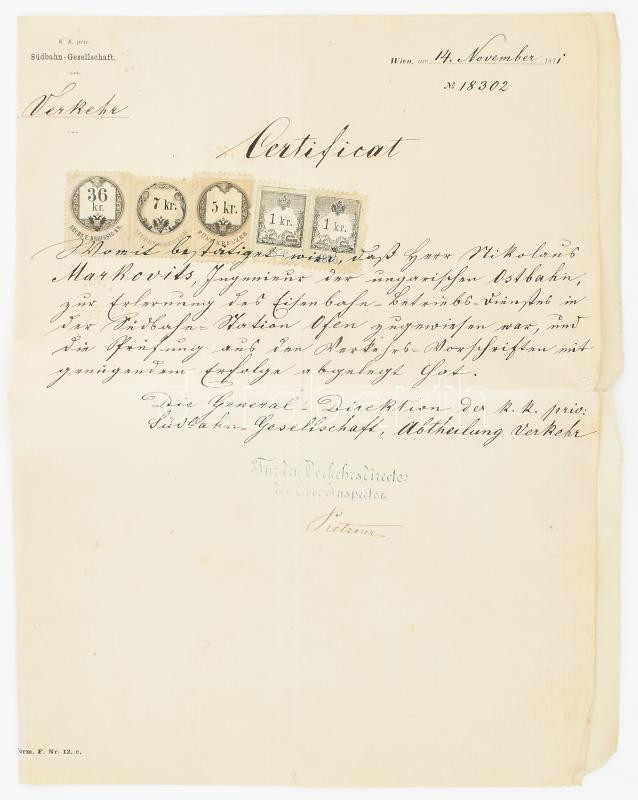 K. K. priv.
Südbahn-Gesellschaft.
Wien, am 14. November 1871
№ 18302
Verkehr
Certificat
36 kr.
7 kr.
5 kr.
1 kr.
1 kr.
Womit bestätiget wird, daß Herr Nikolaus
Markovits, Ingenieur der ungarischen Ostbahn,
zur Erlernung des Eisenbahn-Betriebs-Dienstes in
der Südbahn-Station Ofen zugewiesen war, und
die Prüfung aus den Verkehrs-Vorschriften mit
genügendem Erfolge abgelegt hat.
Die General-Direktion der k. k. priv:
Südbahn-Gesellschaft, Abtheilung Verkehr
Für den Verkehrsdirector
der Ober-Inspector
Form. F. Nr. 12. c.